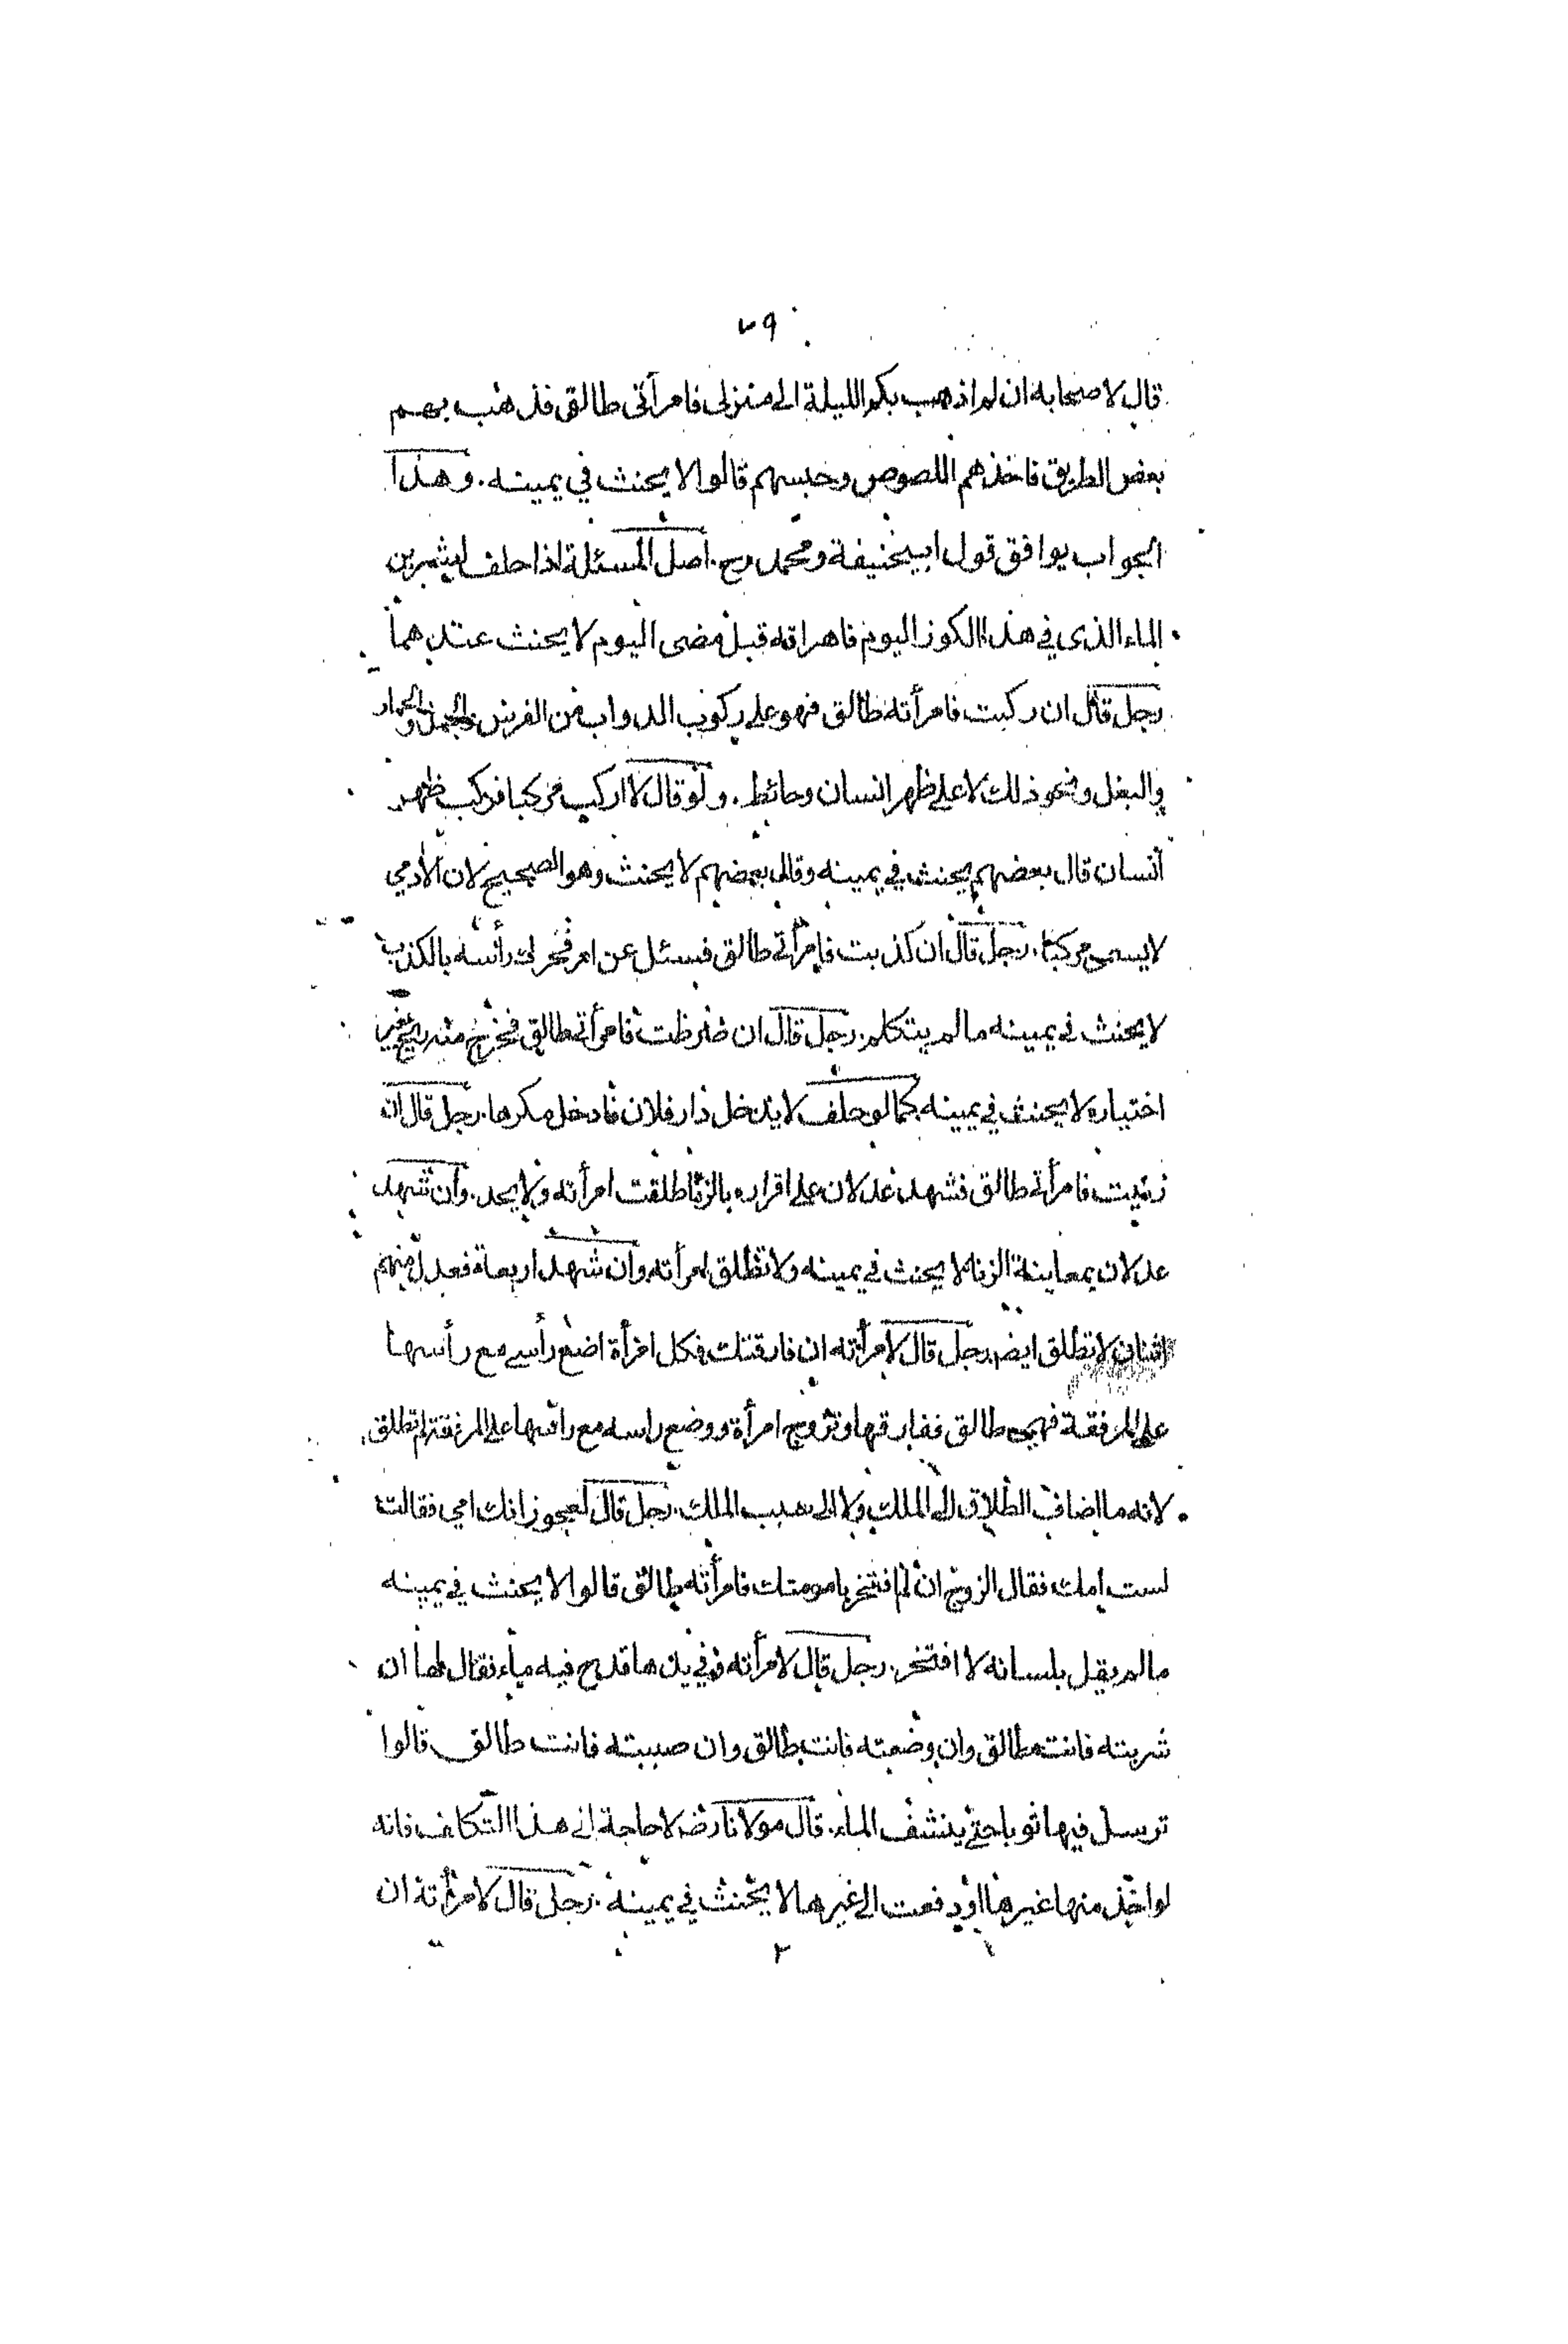 ٧٩
قال لاصحابه ان لم اذهب بكم الليلة الى منزلى فامرأتى طالق فذهب بهم
بعض الطريق فاخذهم اللصوص وحبسهم قالوا لا يحنث في يمينه . وهذا
الجواب يوافق قول ابيحنيفة ومحمد رح . اصل المسئلة اذا حلف ليشربن
الماء الذى في هذا الكوز اليوم فاهراقه قبل مضى اليوم لا يحنث عندهما
رجل قال ان ركبت فامرأته طالق فهو على ركوب الدواب من الفرس والجمل والحمار
والبغل ونحو ذلك لا على ظهر انسان وحائط . ولو قال لا اركب مركبا فركب ظهر
انسان قال بعضهم يحنث في يمينه وقال بعضهم لا يحنث وهو الصحيح لان الآدمي
لا يسمى مركبا . رجل قال ان كذبت فامرأتى طالق فسئل عن امر فحرك رأسه بالكذب
لا يحنث في يمينه ما لم يتكلم . رجل قال ان ضرطت فامرأتى طالق فخرج منه ريح بغير
اختياره لا يحنث في يمينه كما لو حلف لا يدخل دار فلان فادخل مكرها . رجل قال ان
زنيت فامرأتى طالق فشهد عدلان على اقراره بالزنا طلقت امرأته ولا يحد . وان شهد
عدلان بمعاينة الزنا لا يحنث في يمينه ولا تطلق امرأته وان شهد اربعة فعدل منهم
اثنان لا تطلق ايضا . رجل قال لامرأته ان فارقتك فكل امرأة اضع رأسي مع رأسها
على المرفقة فهي طالق ففارقها وتزوج امرأة ووضع راسه مع راسها على المرفقة لم تطلق
لانه ما اضاف الطلاق الى الملك ولا الى سبب الملك . رجل قال لعجوز انك امي فقالت
لست امك فقال الزوج ان لم افتخر بامومتك فامرأته طالق قالوا لا يحنث في يمينه
ما لم يقل بلسانه لا افتخر . رجل قال لامرأته وفي يدها قدح فيه ماء فقال لها ان
شربته فانت طالق وان وضعته فانت طالق وان صببته فانت طالق قالوا
ترسل فيها ثوبا حتى ينشف الماء . قال مولانا رض لا حاجة الى هذا التكلف فانه
لو اخذ منها غيرها او دفعت الى غيرها لا يحنث في يمينه . رجل قال لامرأته ان
٢